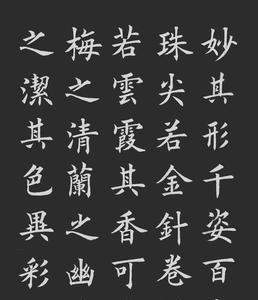 妙其形千姿百
珠尖若金針卷
若雲霞其香可
梅之清蘭之幽
之潔其色異彩